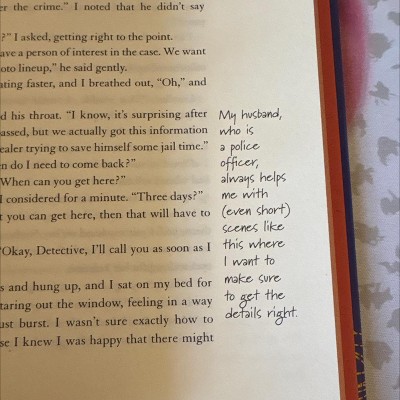 er the crime." I noted that he didn't say
?" I asked, getting right to the point.
ave a person of interest in the case. We want
oto lineup," he said gently.
ating faster, and I breathed out, "Oh," and
d his throat. "I know, it's surprising after
assed, but we actually got this information
ealer trying to save himself some jail time."
n do I need to come back?"
When can you get here?"
I considered for a minute. "Three days?"
t you can get here, then that will have to
"Okay, Detective, I'll call you as soon as I
s and hung up, and I sat on my bed for
taring out the window, feeling in a way
ust burst. I wasn't sure exactly how to
se I knew I was happy that there might
My husband,
who is
a police
officer,
always helps
me with
(even short)
scenes like
this where
I want to
make sure
to get the
details right.